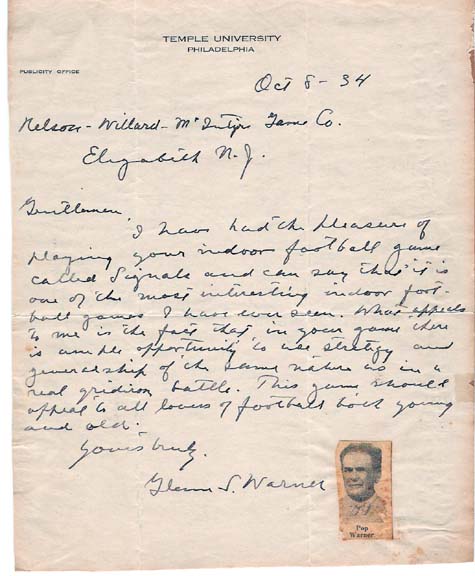 TEMPLE UNIVERSITY
PHILADELPHIA
PUBLICITY OFFICE
Oct 8 - 34
Nelson - Willard - McIntyre Game Co.
Elizabeth N.J.
Gentlemen,
I have had the pleasure of
playing your indoor football game
called Signals and can say that it is
one of the most interesting indoor foot-
ball games I have ever seen. What appeals
to me is the fact that in your game there
is ample opportunity to use strategy and
generalship of the same nature as in a
real gridiron battle. This game should
appeal to all lovers of football both young
and old.
Yours truly,
Glenn S. Warner
Pop
Warner.